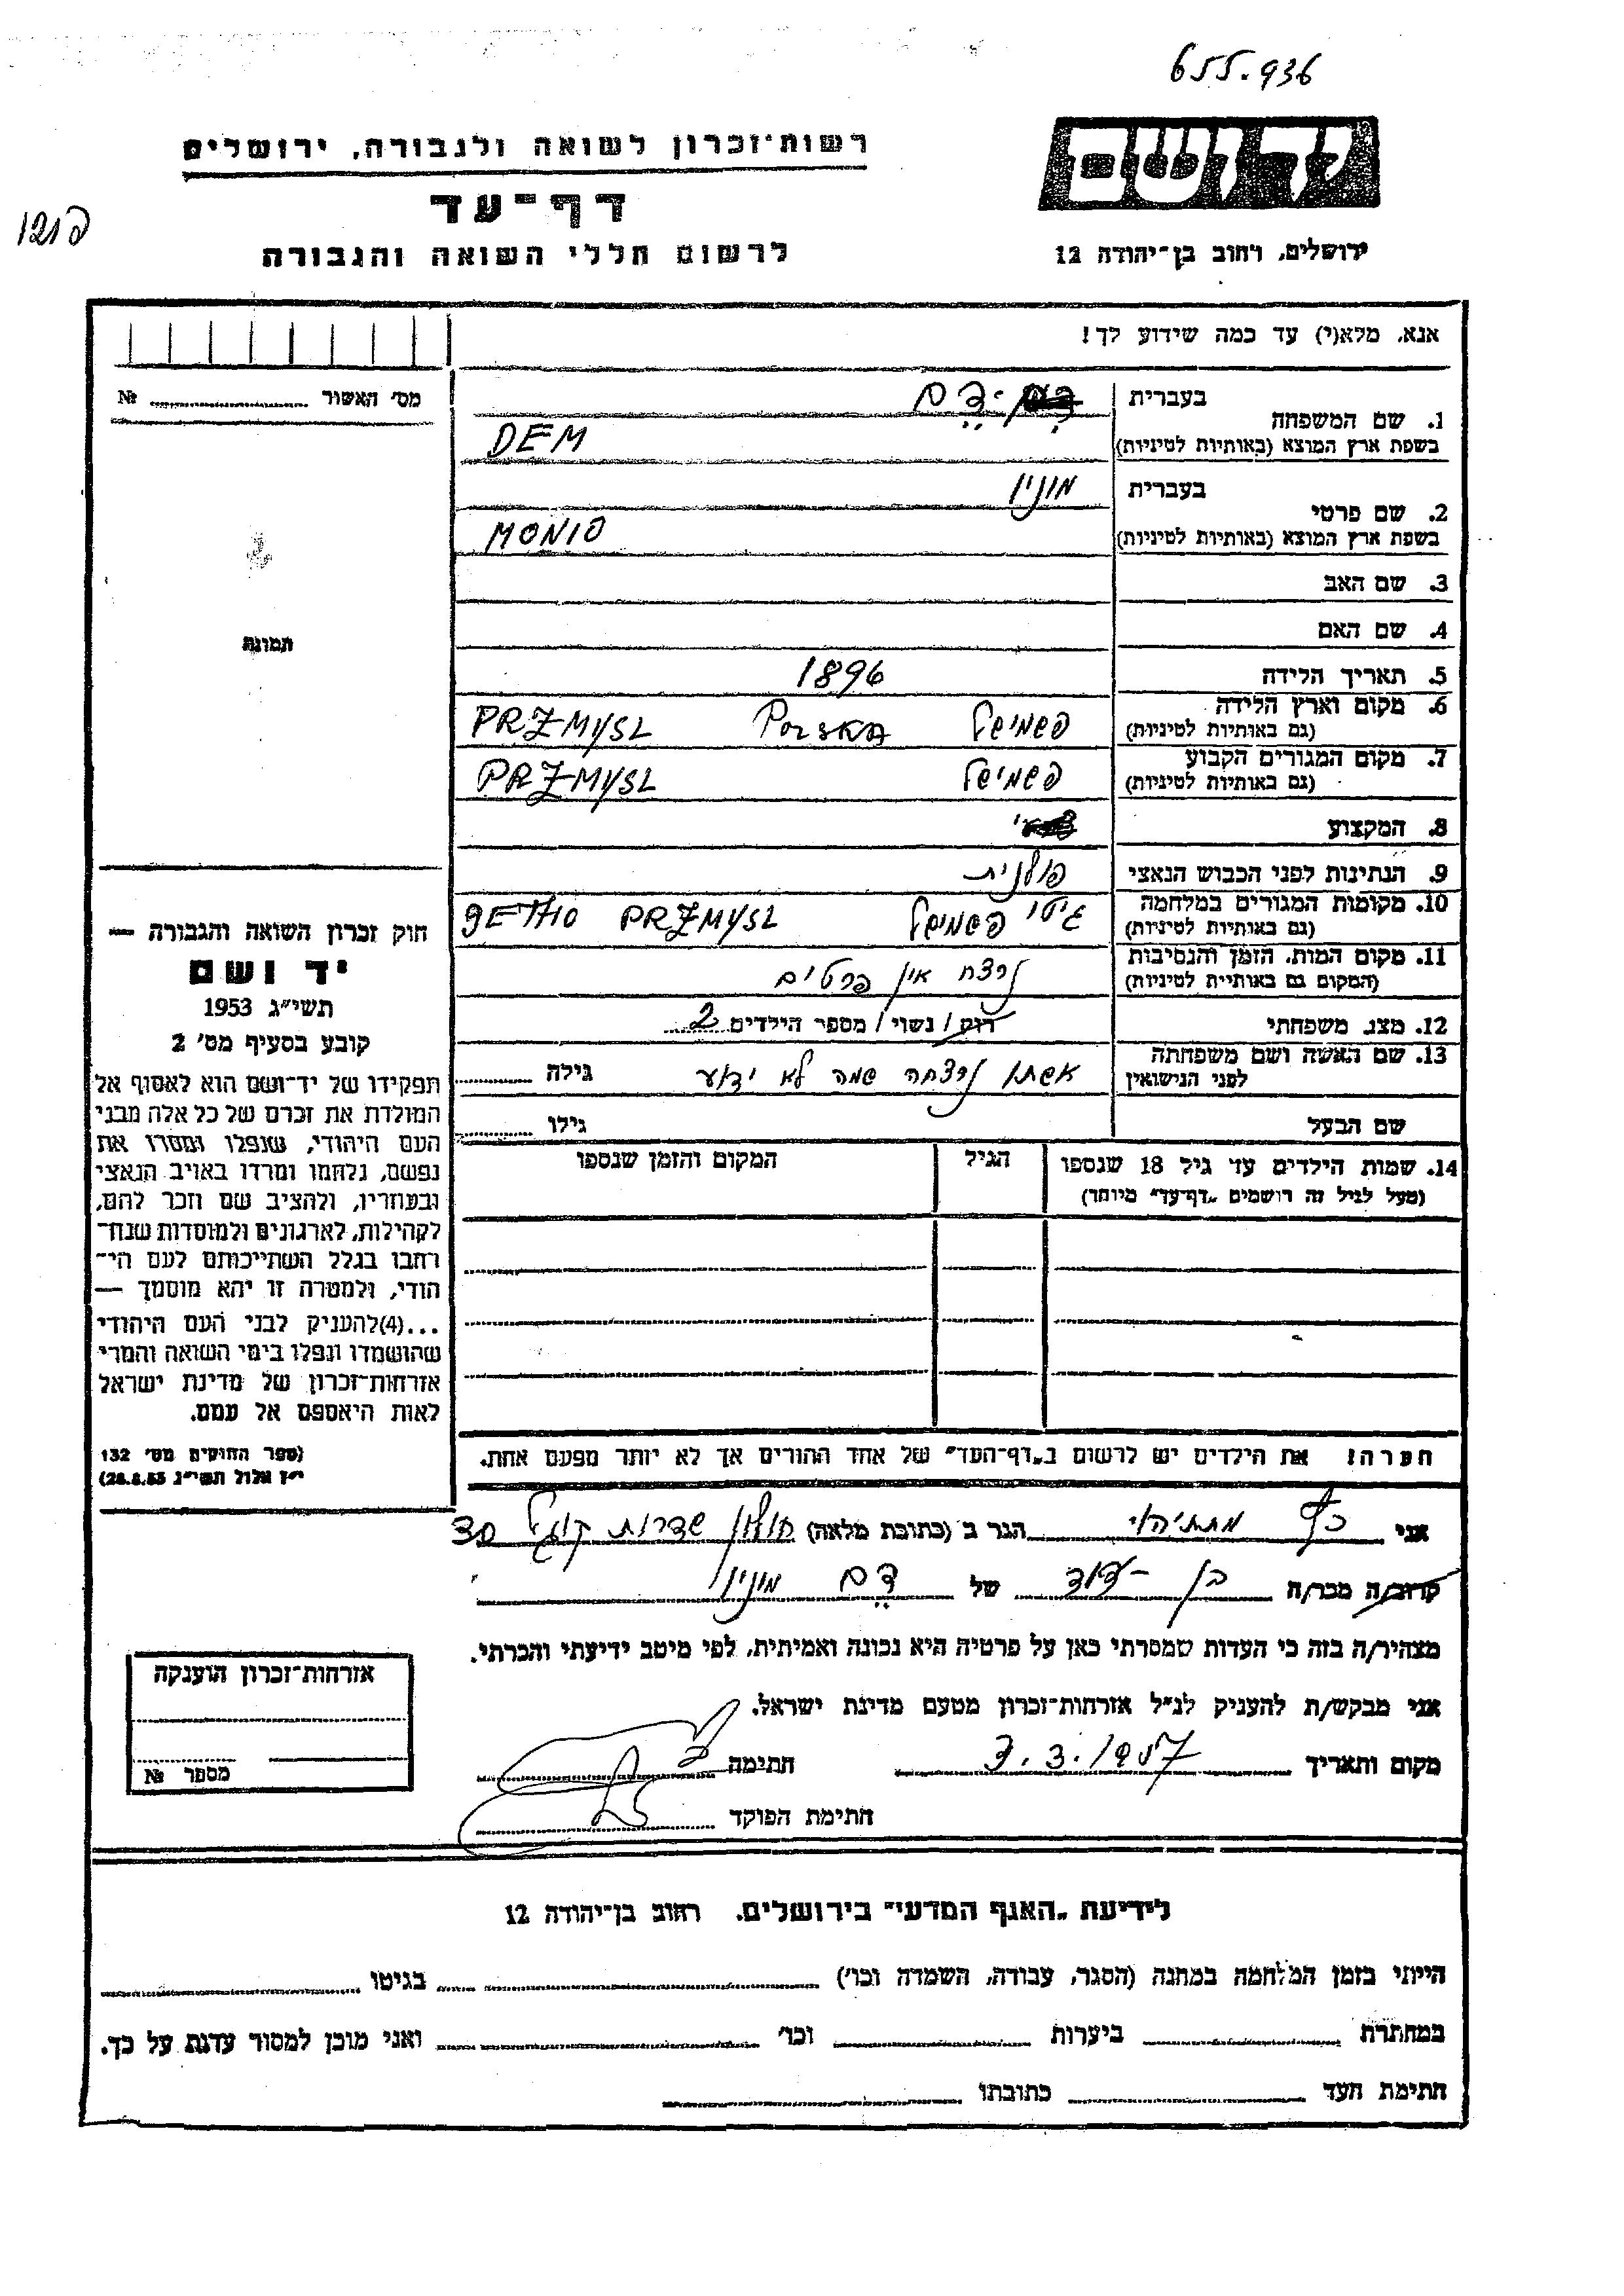 655.936
יד ושם
רשות־זכרון לשואה ולגבורה, ירושלים
דף־עד
לרשום חללי השואה והגבורה
ירושלים, רחוב בן־יהודה 12
אנא, מלא(י) עד כמה שידוע לך!
מס׳ האשור № 
1. שם המשפחה
בעברית דֵם
בשפת ארץ המוצא (באותיות לטיניות) DEM
2. שם פרטי
בעברית מוניו
בשפת ארץ המוצא (באותיות לטיניות) MONIO
3. שם האב
4. שם האם
תמונה
5. תאריך הלידה 1896
6. מקום וארץ הלידה (גם באותיות לטיניות) פשמישל POLSKA PRZMYSL
7. מקום המגורים הקבוע (גם באותיות לטיניות) פשמישל PRZMYSL
8. המקצוע
9. הנתינות לפני הכבוש הנאצי פולנית
10. מקומות המגורים במלחמה (גם באותיות לטיניות) גיטו פשמישל GETTIO PRZMYSL
11. מקום המות, הזמן והנסיבות (המקום גם באותיות לטיניות) נרצח אין פרטים
12. מצב משפחתי רוק/נשוי/ מספר הילדים 2
13. שם האשה ושם משפחתה לפני הנישואין אשתו נרצחה שמה לא ידוע גילה
שם הבעל גילו
14. שמות הילדים עד גיל 18 שנספו (מעל לגיל זה רושמים „דף־עד״ מיוחד) הגיל המקום והזמן שנספו
חוק זכרון השואה והגבורה —
יד ושם
תשי״ג 1953
קובע בסעיף מס׳ 2
תפקידו של יד־ושם הוא לאסוף אל
המולדת את זכרם של כל אלה מבני
העם היהודי, שנפלו ומסרו את
נפשם, נלחמו ומרדו באויב הנאצי
ובעוזריו, ולהציב שם וזכר להם,
לקהילות, לארגונים ולמוסדות שנח־
רחבו בגלל השתייכותם לעם הי־
הודי, ולמטרה זו יהא מוסמך —
...(4)להעניק לבני העם היהודי
שהושמדו ונפלו בימי השואה והמרי
אזרחות־זכרון של מדינת ישראל
לאות היאספם אל עמם.
(ספר החוקים מס׳ 132
י״ז אלול תשי״ג 28.8.53)
הערה! את הילדים יש לרשום ב„דף־העד״ של אחד ההורים אך לא יותר מפעם אחת.
אני כץ מתתיהו הגר ב (כתובת מלאה) חולון שדרות קוגל
קרוב/ה מכר/ה בן־דוד של דֵם מוניו
מצהיר/ה בזה כי העדות שמסרתי כאן על פרטיה היא נכונה ואמיתית, לפי מיטב ידיעתי והכרתי.
אני מבקש/ת להעניק לנ״ל אזרחות־זכרון מטעם מדינת ישראל.
מקום ותאריך 7.3.1957 חתימה
חתימת הפוקד
אזרחות־זכרון הוענקה
מספר №
לידיעת „האגף המדעי״ בירושלים, רחוב בן־יהודה 12
הייתי בזמן המלחמה במחנה (הסגר, עבודה, השמדה וכו׳) בגיטו
במחתרת ביערות וכו׳ ואני מוכן למסור עדות על כך.
חתימת העד כתובתו